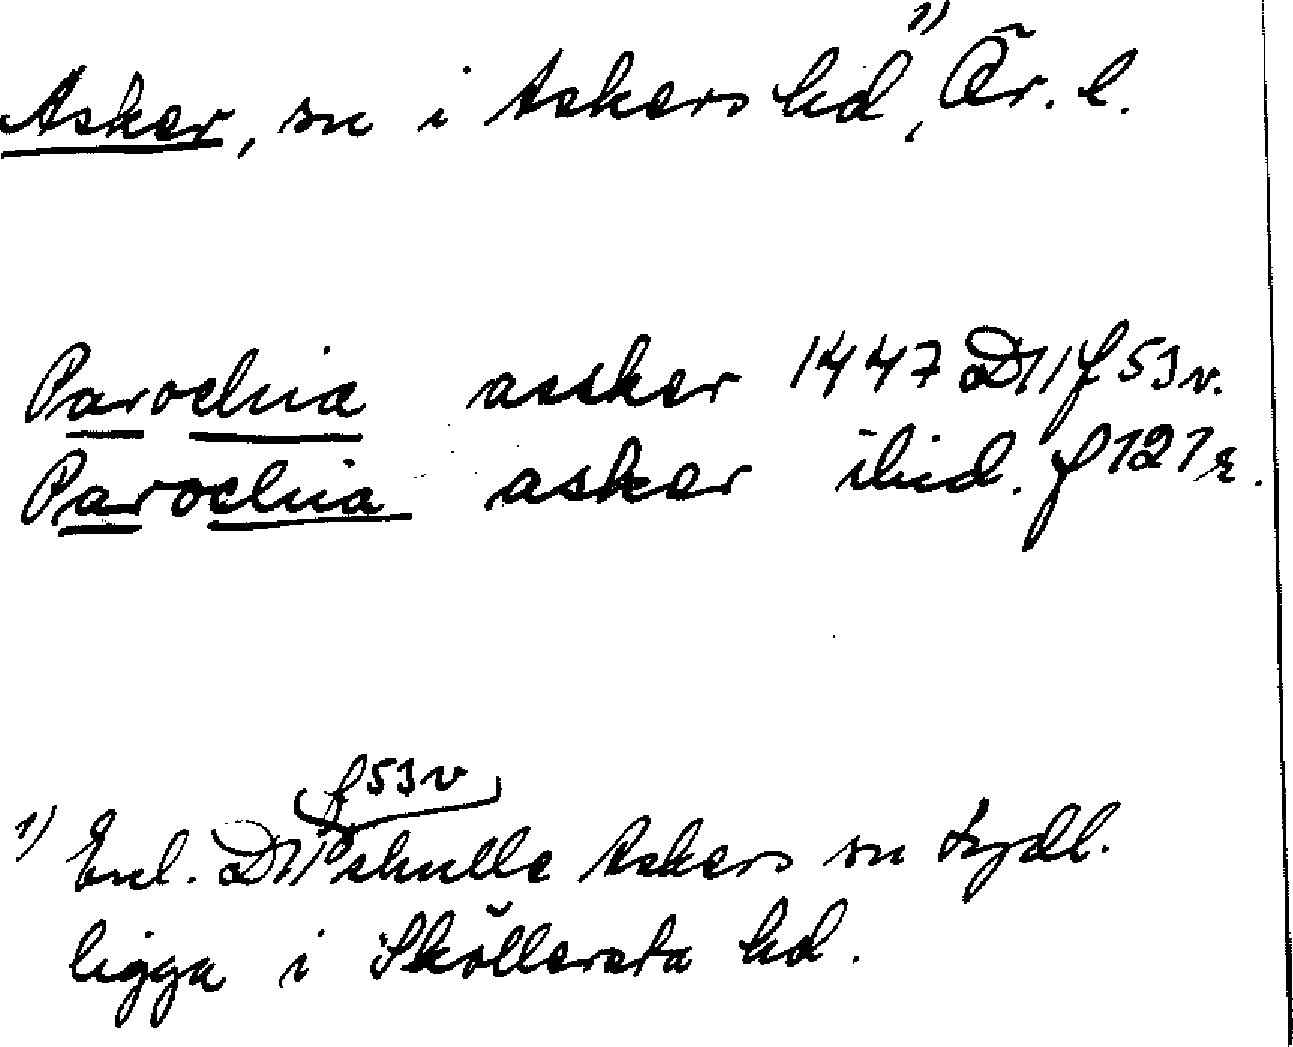 Asker, sn i Askers hd,¹⁾ Ör. l.
Parochia assker 1447 D11 f 53 v.
Parochia asker ibid. f 121 r.
f 53 v
1) Enl. D11 skulle Askers sn tydl.
ligga i Sköllersta hd.